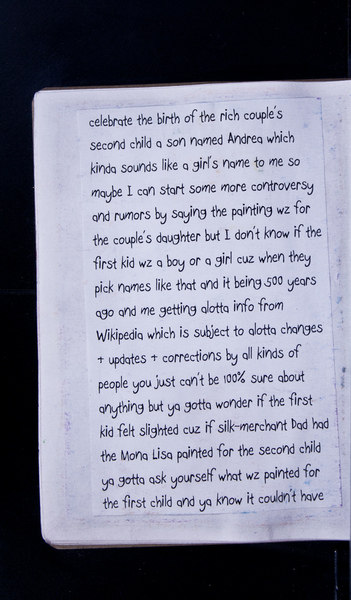 celebrate the birth of the rich couple's
second child a son named Andrea which
kinda sounds like a girl's name to me so
maybe I can start some more controversy
and rumors by saying the painting wz for
the couple's daughter but I don't know if the
first kid wz a boy or a girl cuz when they
pick names like that and it being 500 years
ago and me getting alotta info from
Wikipedia which is subject to alotta changes
+ updates + corrections by all kinds of
people you just can't be 100% sure about
anything but ya gotta wonder if the first
kid felt slighted cuz if silk-merchant Dad had
the Mona Lisa painted for the second child
ya gotta ask yourself what wz painted for
the first child and ya know it couldn't have